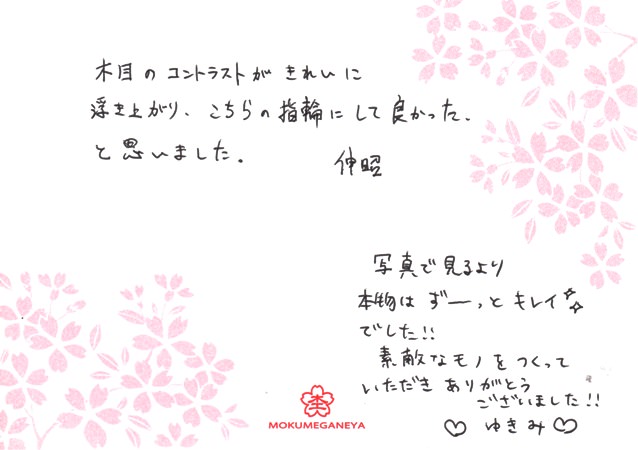 木目のコントラストがきれいに
浮き上がり、こちらの指輪にして良かった、
と思いました。
伸昭
写真で見るより
本物はずーっとキレイ
でした!!
素敵なモノをつくって
いただきありがとう
ございました!!
♡ ゆきみ ♡
MOKUMEGANEYA